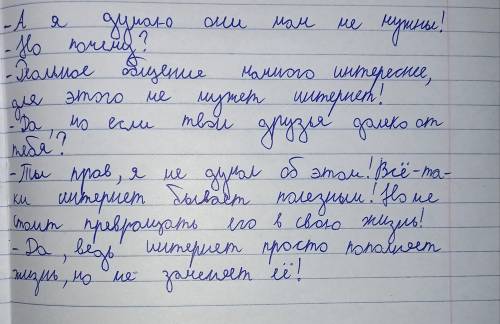 - А я думаю они нам не нужны!
- Но почему?
- Реальное общение намного интереснее,
для этого не нужет интернет!
- Да, но если твои друзья далеко от
тебя?
- Ты прав, я не думал об этом! Всё-та-
ки интернет бывает полезным! Но не
стоит превращать его в свою жизнь!
- Да, ведь интернет просто пополняет
жизнь, но не заменяет её!